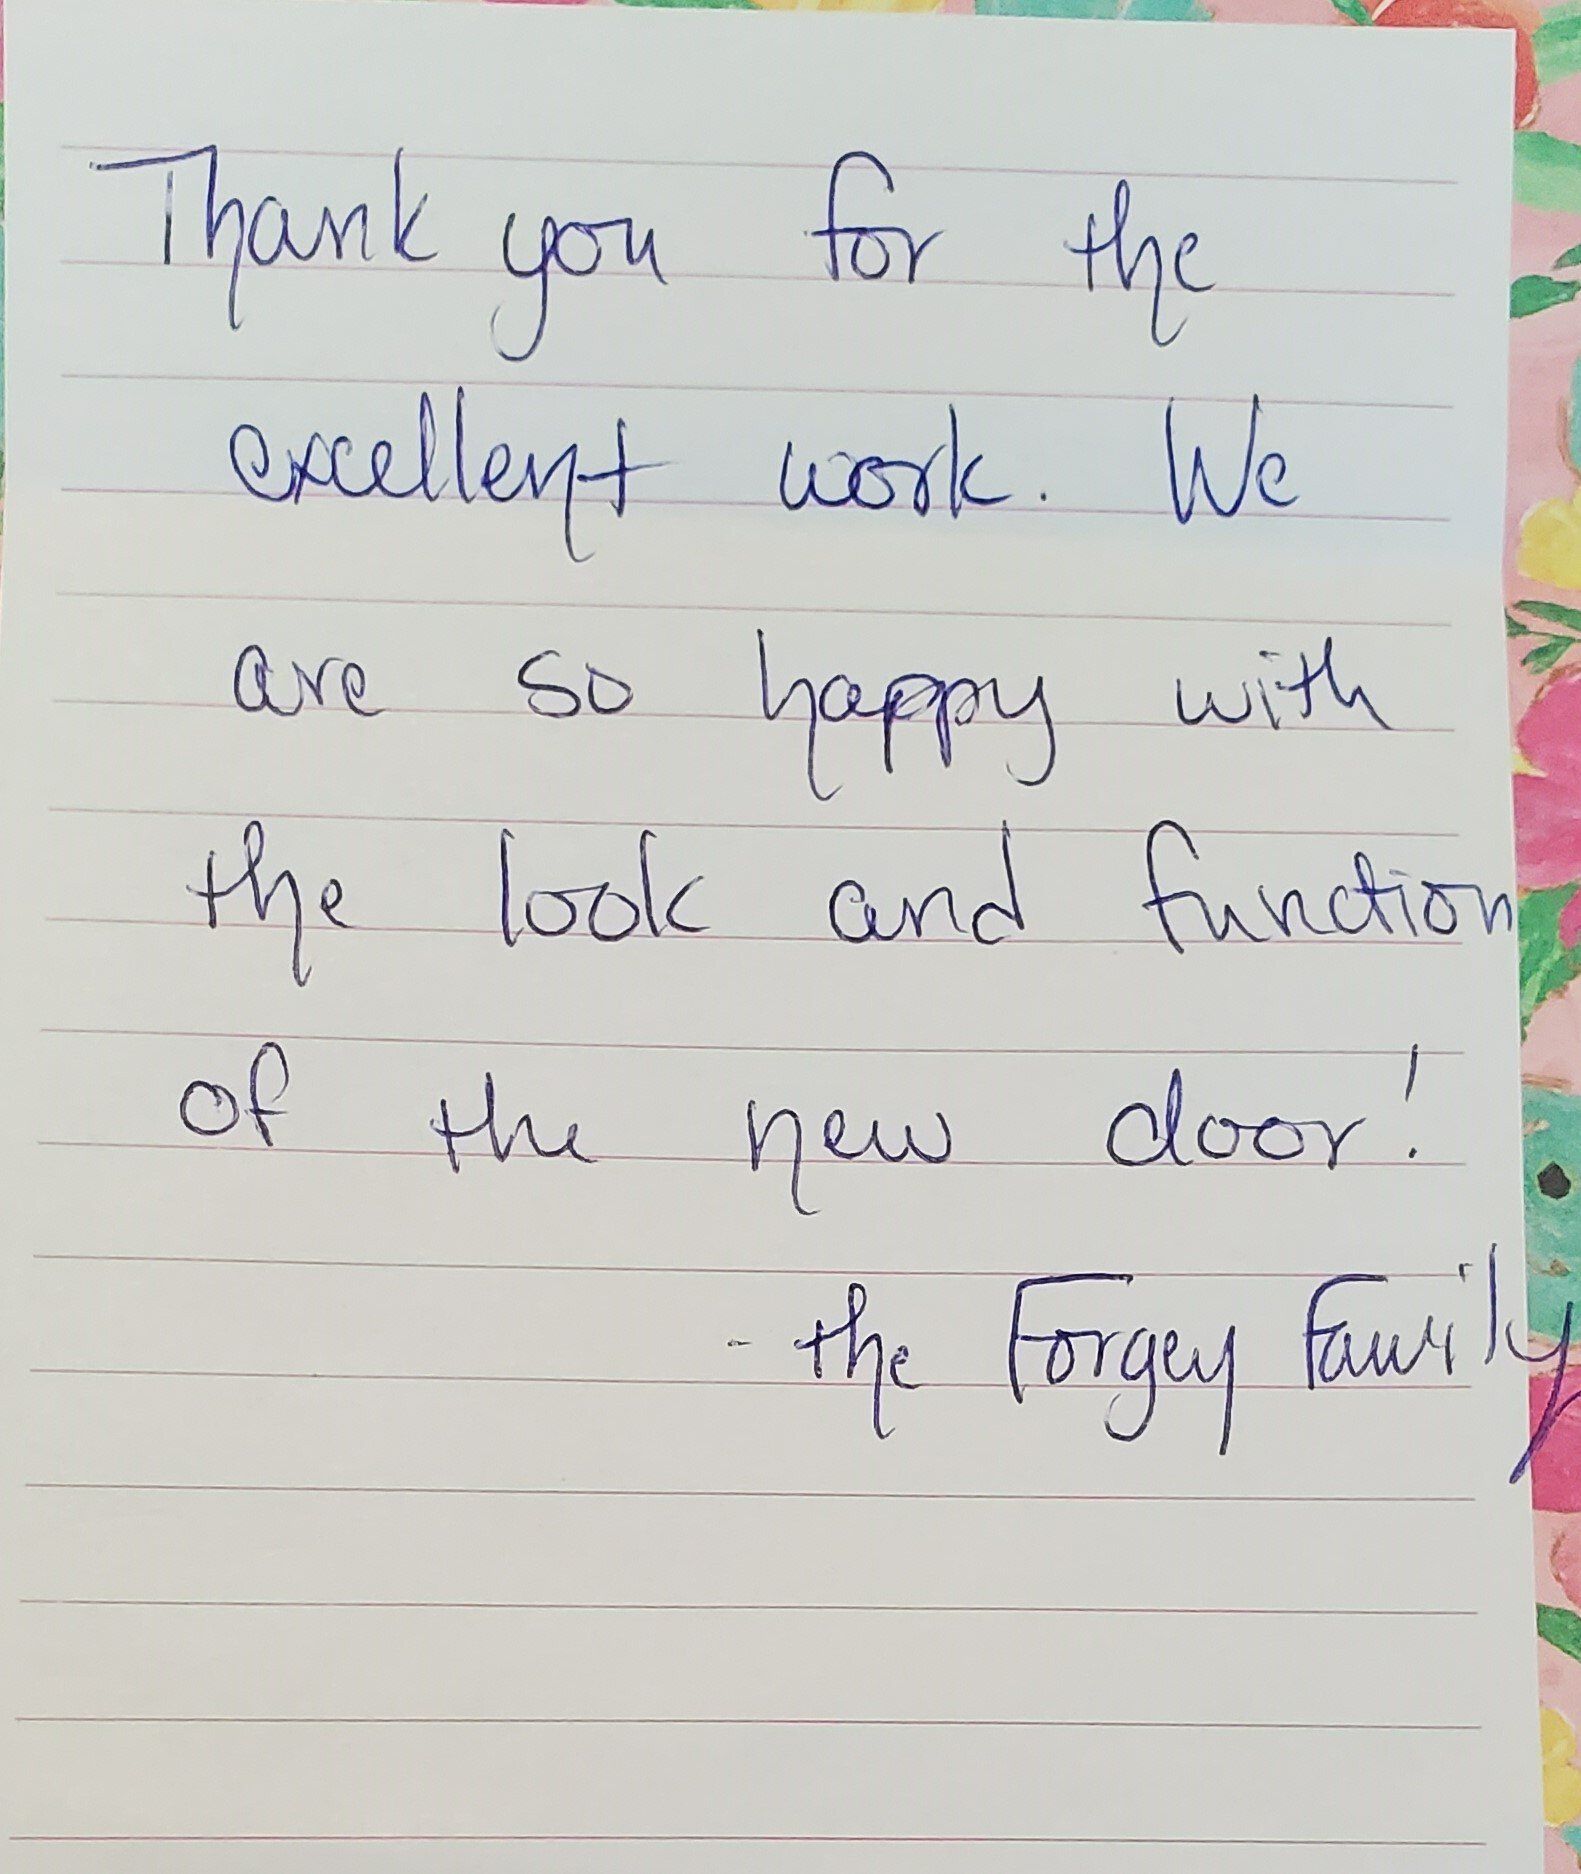 Thank you for the
excellent work. We
are so happy with
the look and function
of the new door!
- the Forgey Family